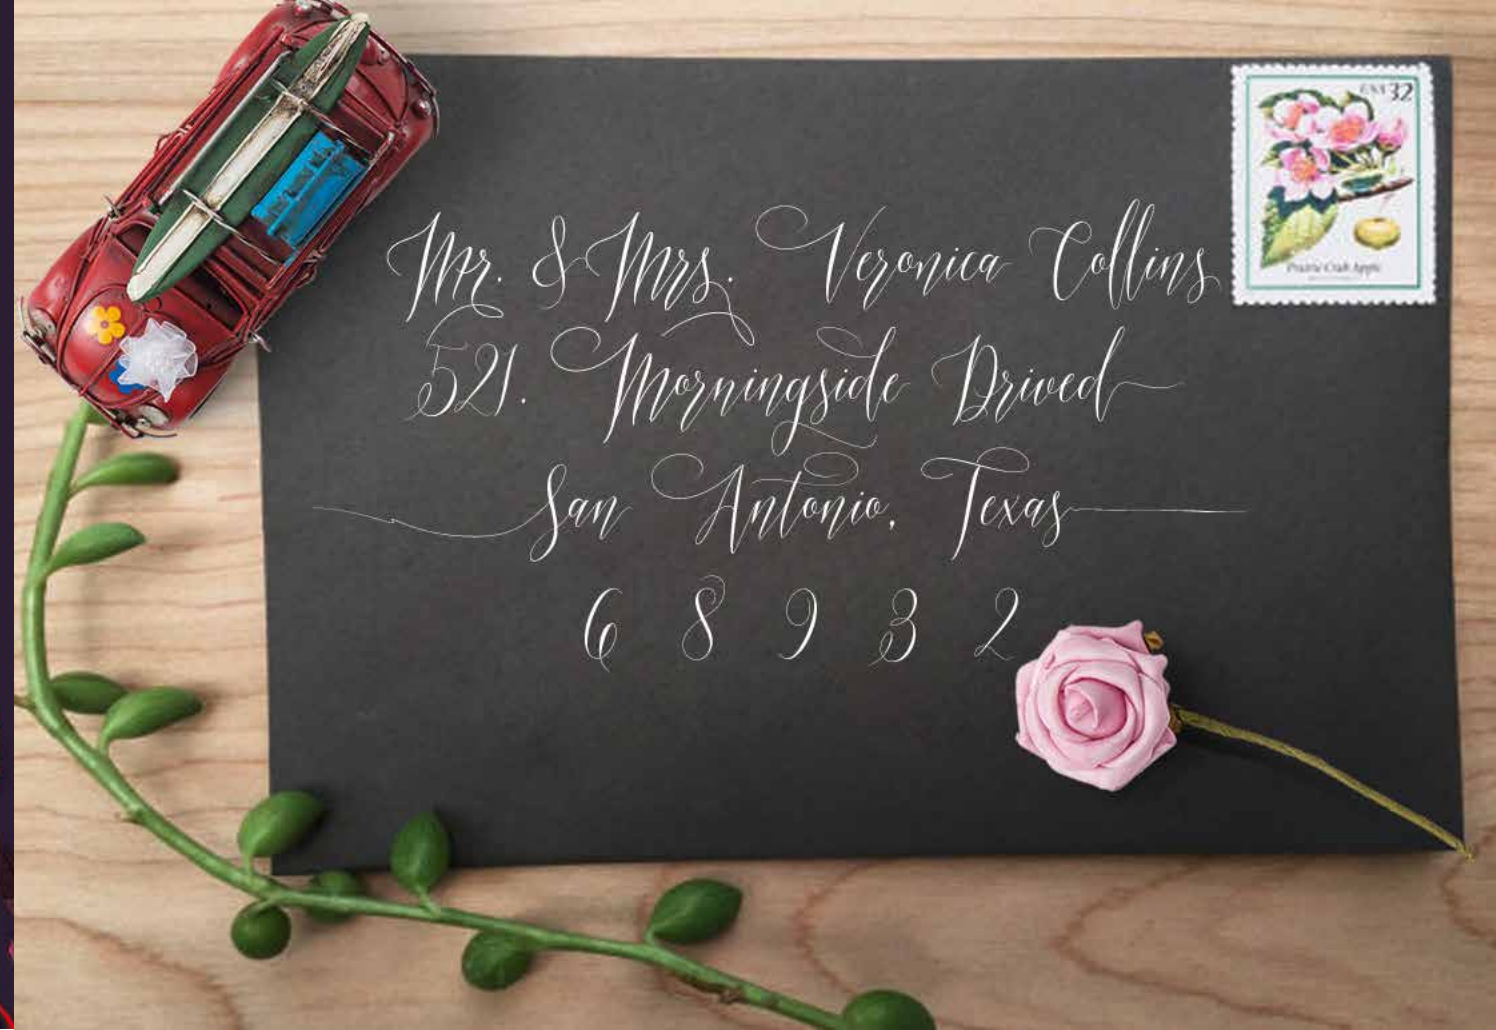 USA 32
Prairie Crab Apple
Mr. & Mrs. Veronica Collins
521. Morningside Drived
San Antonio, Texas
6 8 9 3 2